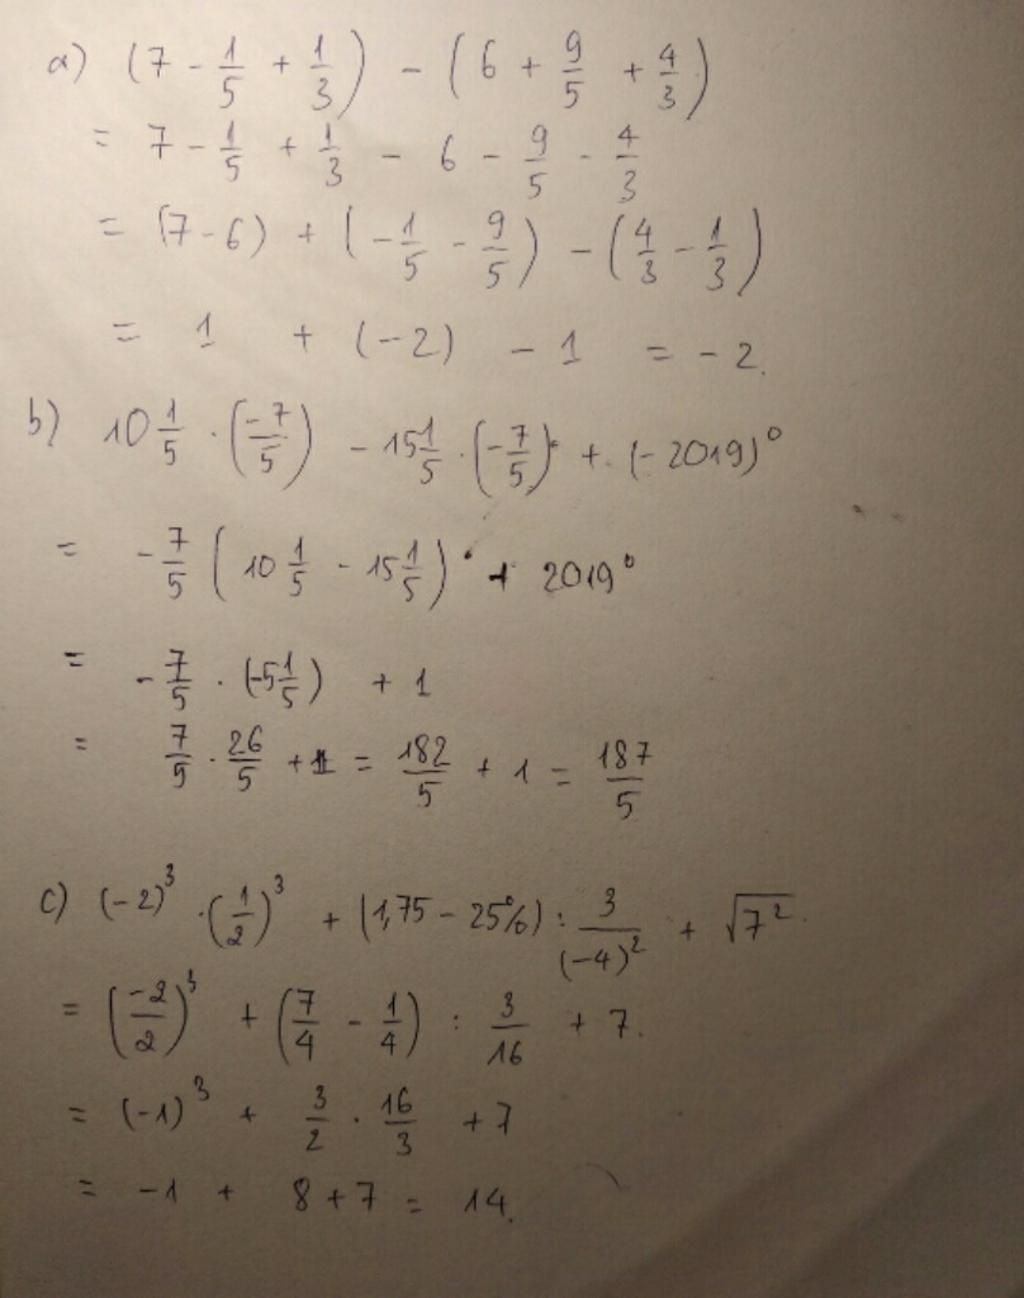 a) (7 - 1/5 + 1/3) - (6 + 9/5 + 4/3)
= 7 - 1/5 + 1/3 - 6 - 9/5 - 4/3
= (7 - 6) + (-1/5 - 9/5) - (4/3 - 1/3)
= 1 + (-2) - 1 = -2.
b) 10 1/5 · (-7/5) - 15 1/5 · (-7/5) + (-2019)⁰
= -7/5 (10 1/5 - 15 1/5) + 2019⁰
= -7/5 · (-5 1/5) + 1
= 7/5 · 26/5 + 1 = 182/5 + 1 = 187/5
c) (-2)³ · (1/2)³ + (1,75 - 25%) : 3/(-4)² + √7².
= (-2/2)³ + (7/4 - 1/4) : 3/16 + 7.
= (-1)³ + 3/2 · 16/3 + 7
= -1 + 8 + 7 = 14.